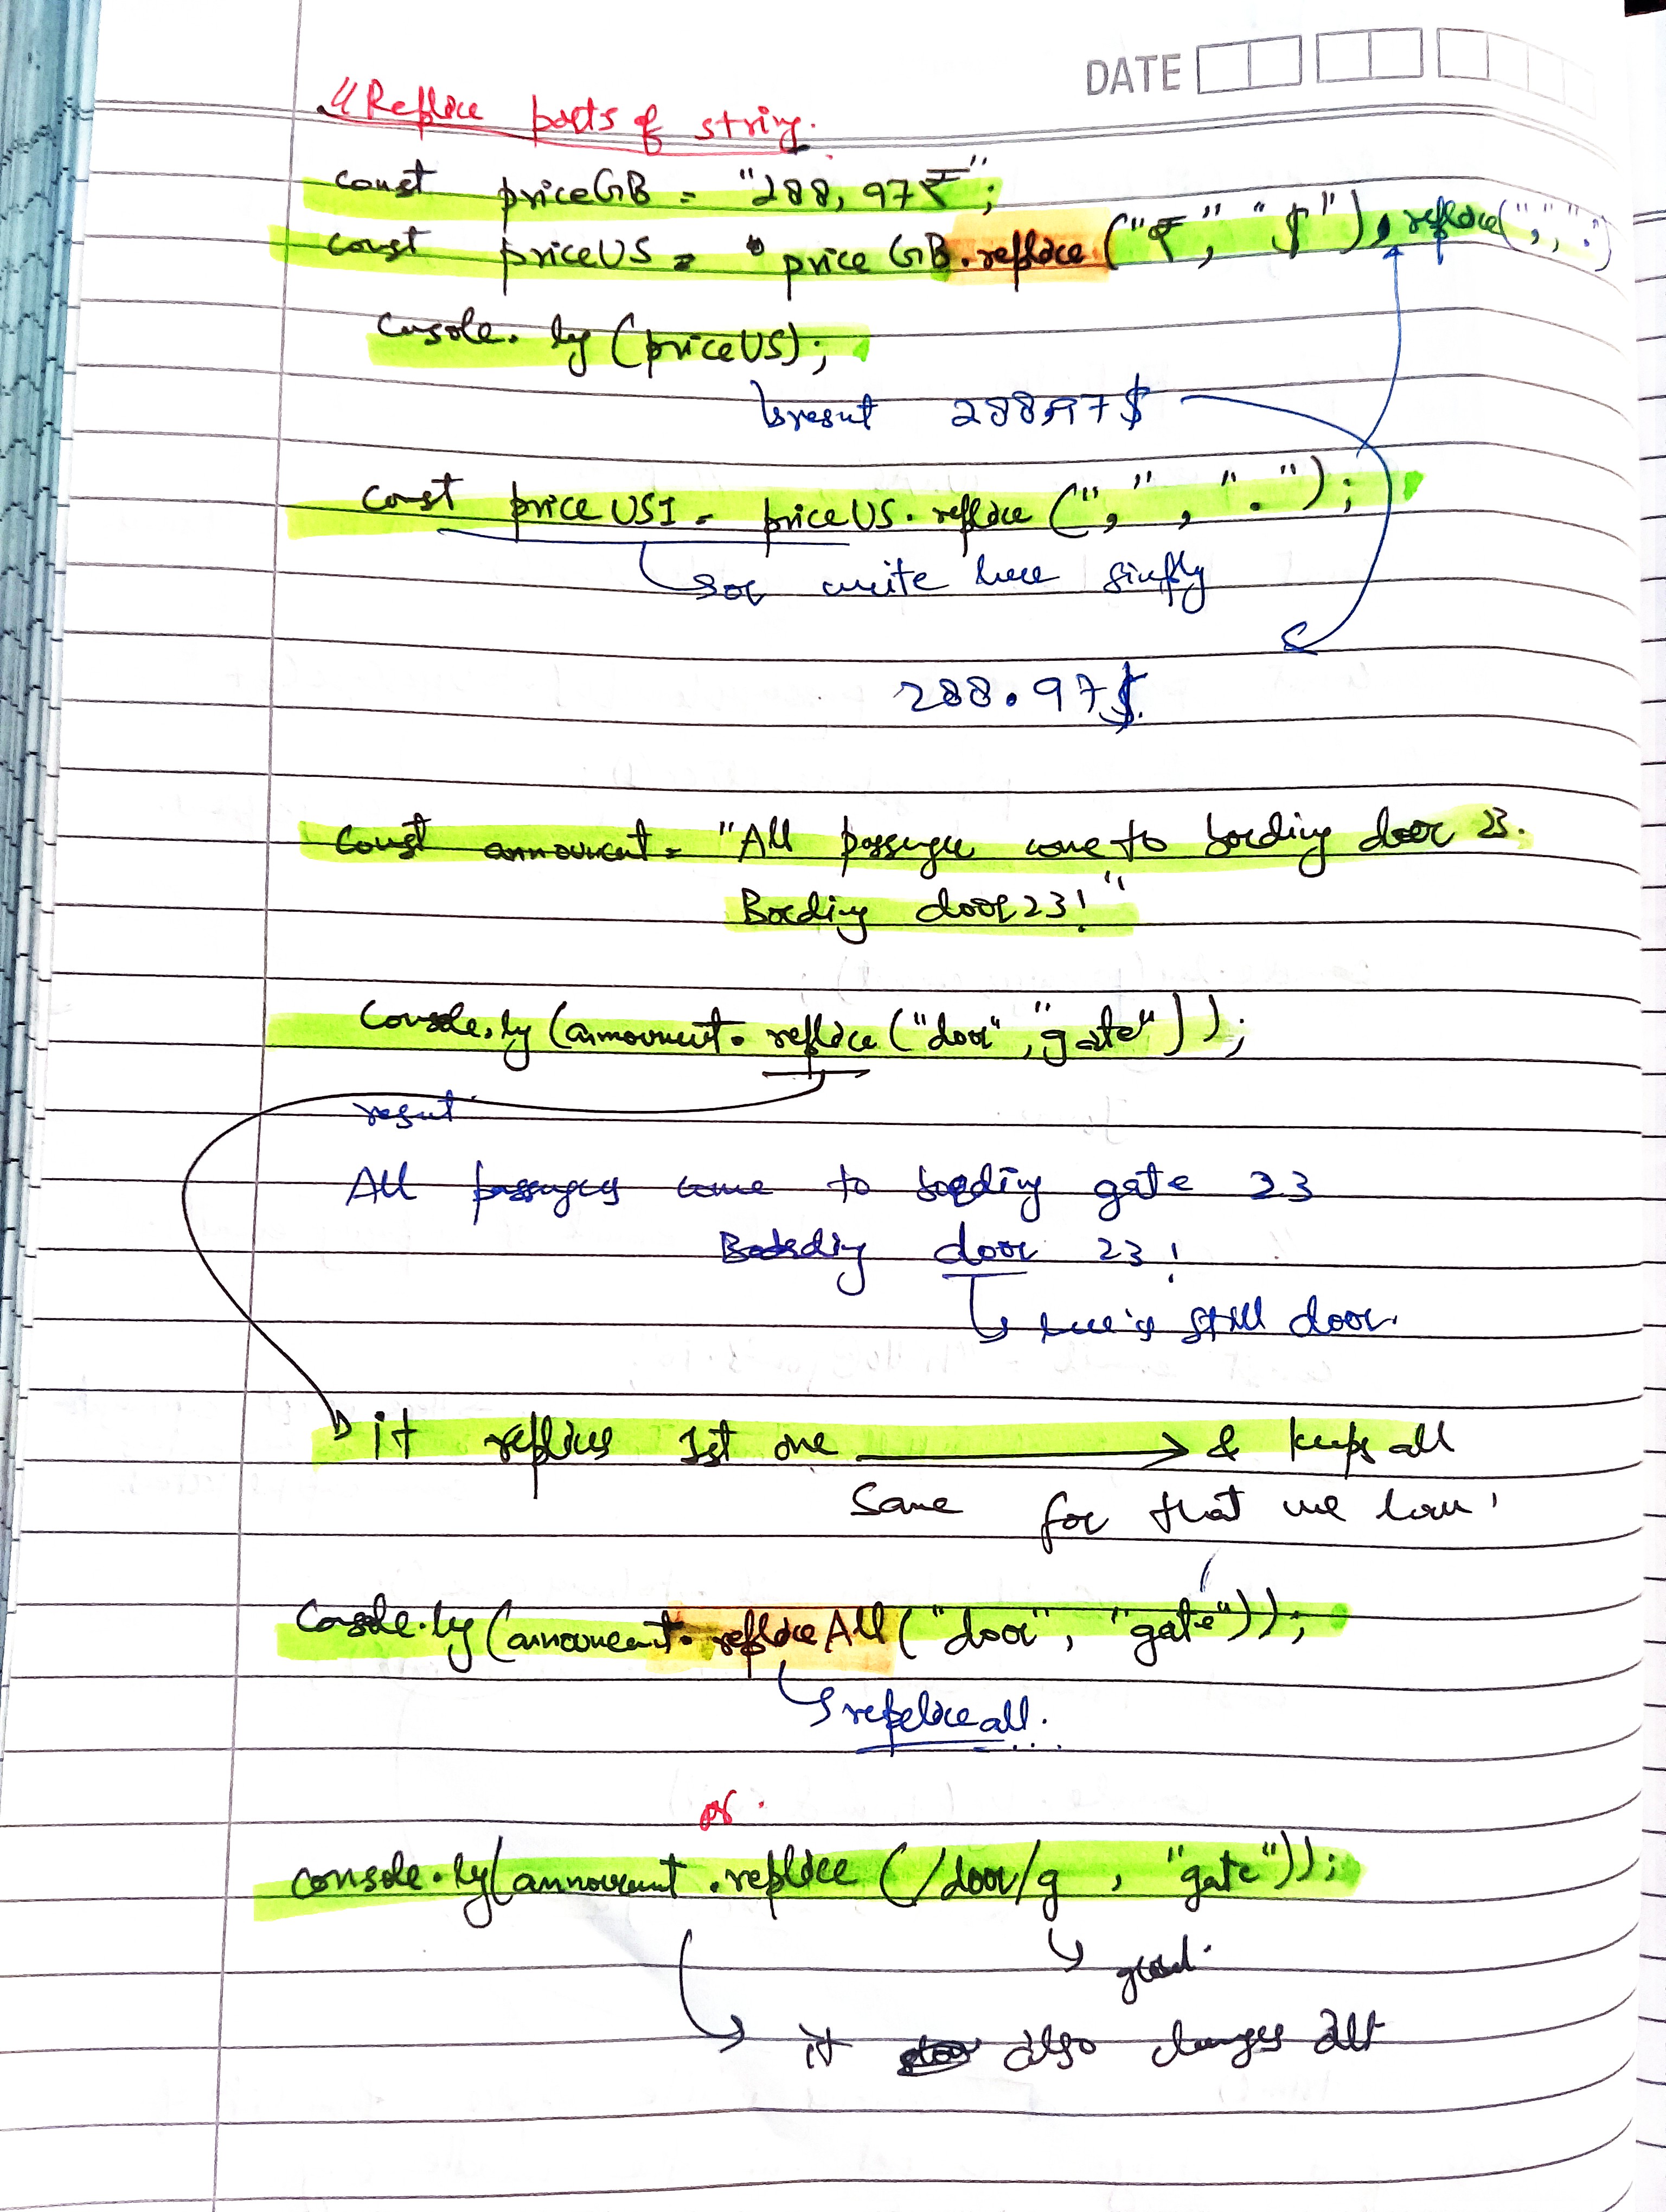 DATE
// Replace parts of string.
const priceGB = "288,97₹";
const priceUS = priceGB.replace("₹", "$").replace(",", ".")
console.log(priceUS);
↳ result 288,97$
const priceUS1 = priceUS.replace(",", ".");
↳ or write here simply
288.97$
const announcment = "All passenger come to boarding door 23.
Boarding door 23!"
Console.log(announcment.replace("door", "gate"));
result
All passengers come to boarding gate 23
Boarding door 23!
↳ here is still door.
it replaces 1st one → & keeps all
same for that we have
Console.log(announcment.replaceAll("door", "gate"));
↳ repelace all.
or
console.log(announcment.replace(/door/g, "gate"));
↳ global.
→ it also changes all